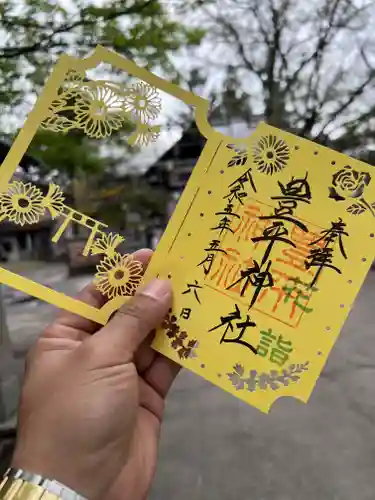 奉拝
豊平神社
令和五年五月六日
花詣